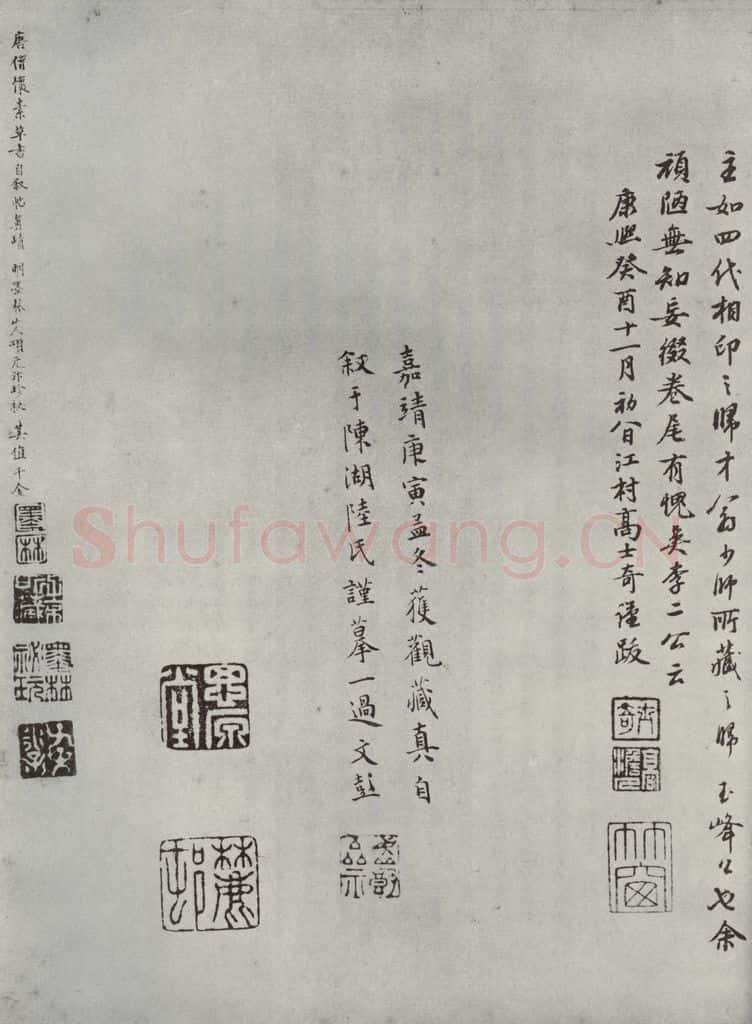 主如四代相印之歸才翁少師所藏之歸玉峰公也余
頑陋無知妄綴卷尾有愧吳李二公云
康熙癸酉十一月初八日江村高士奇謹跋
嘉靖庚寅孟冬獲觀藏真自
叙于陳湖陸氏謹摹一過文彭
唐僧懷素草書自叙帖真蹟 明墨林山人項元汴珍秘 其值千金
墨林
竹窗
Shufawang.CN